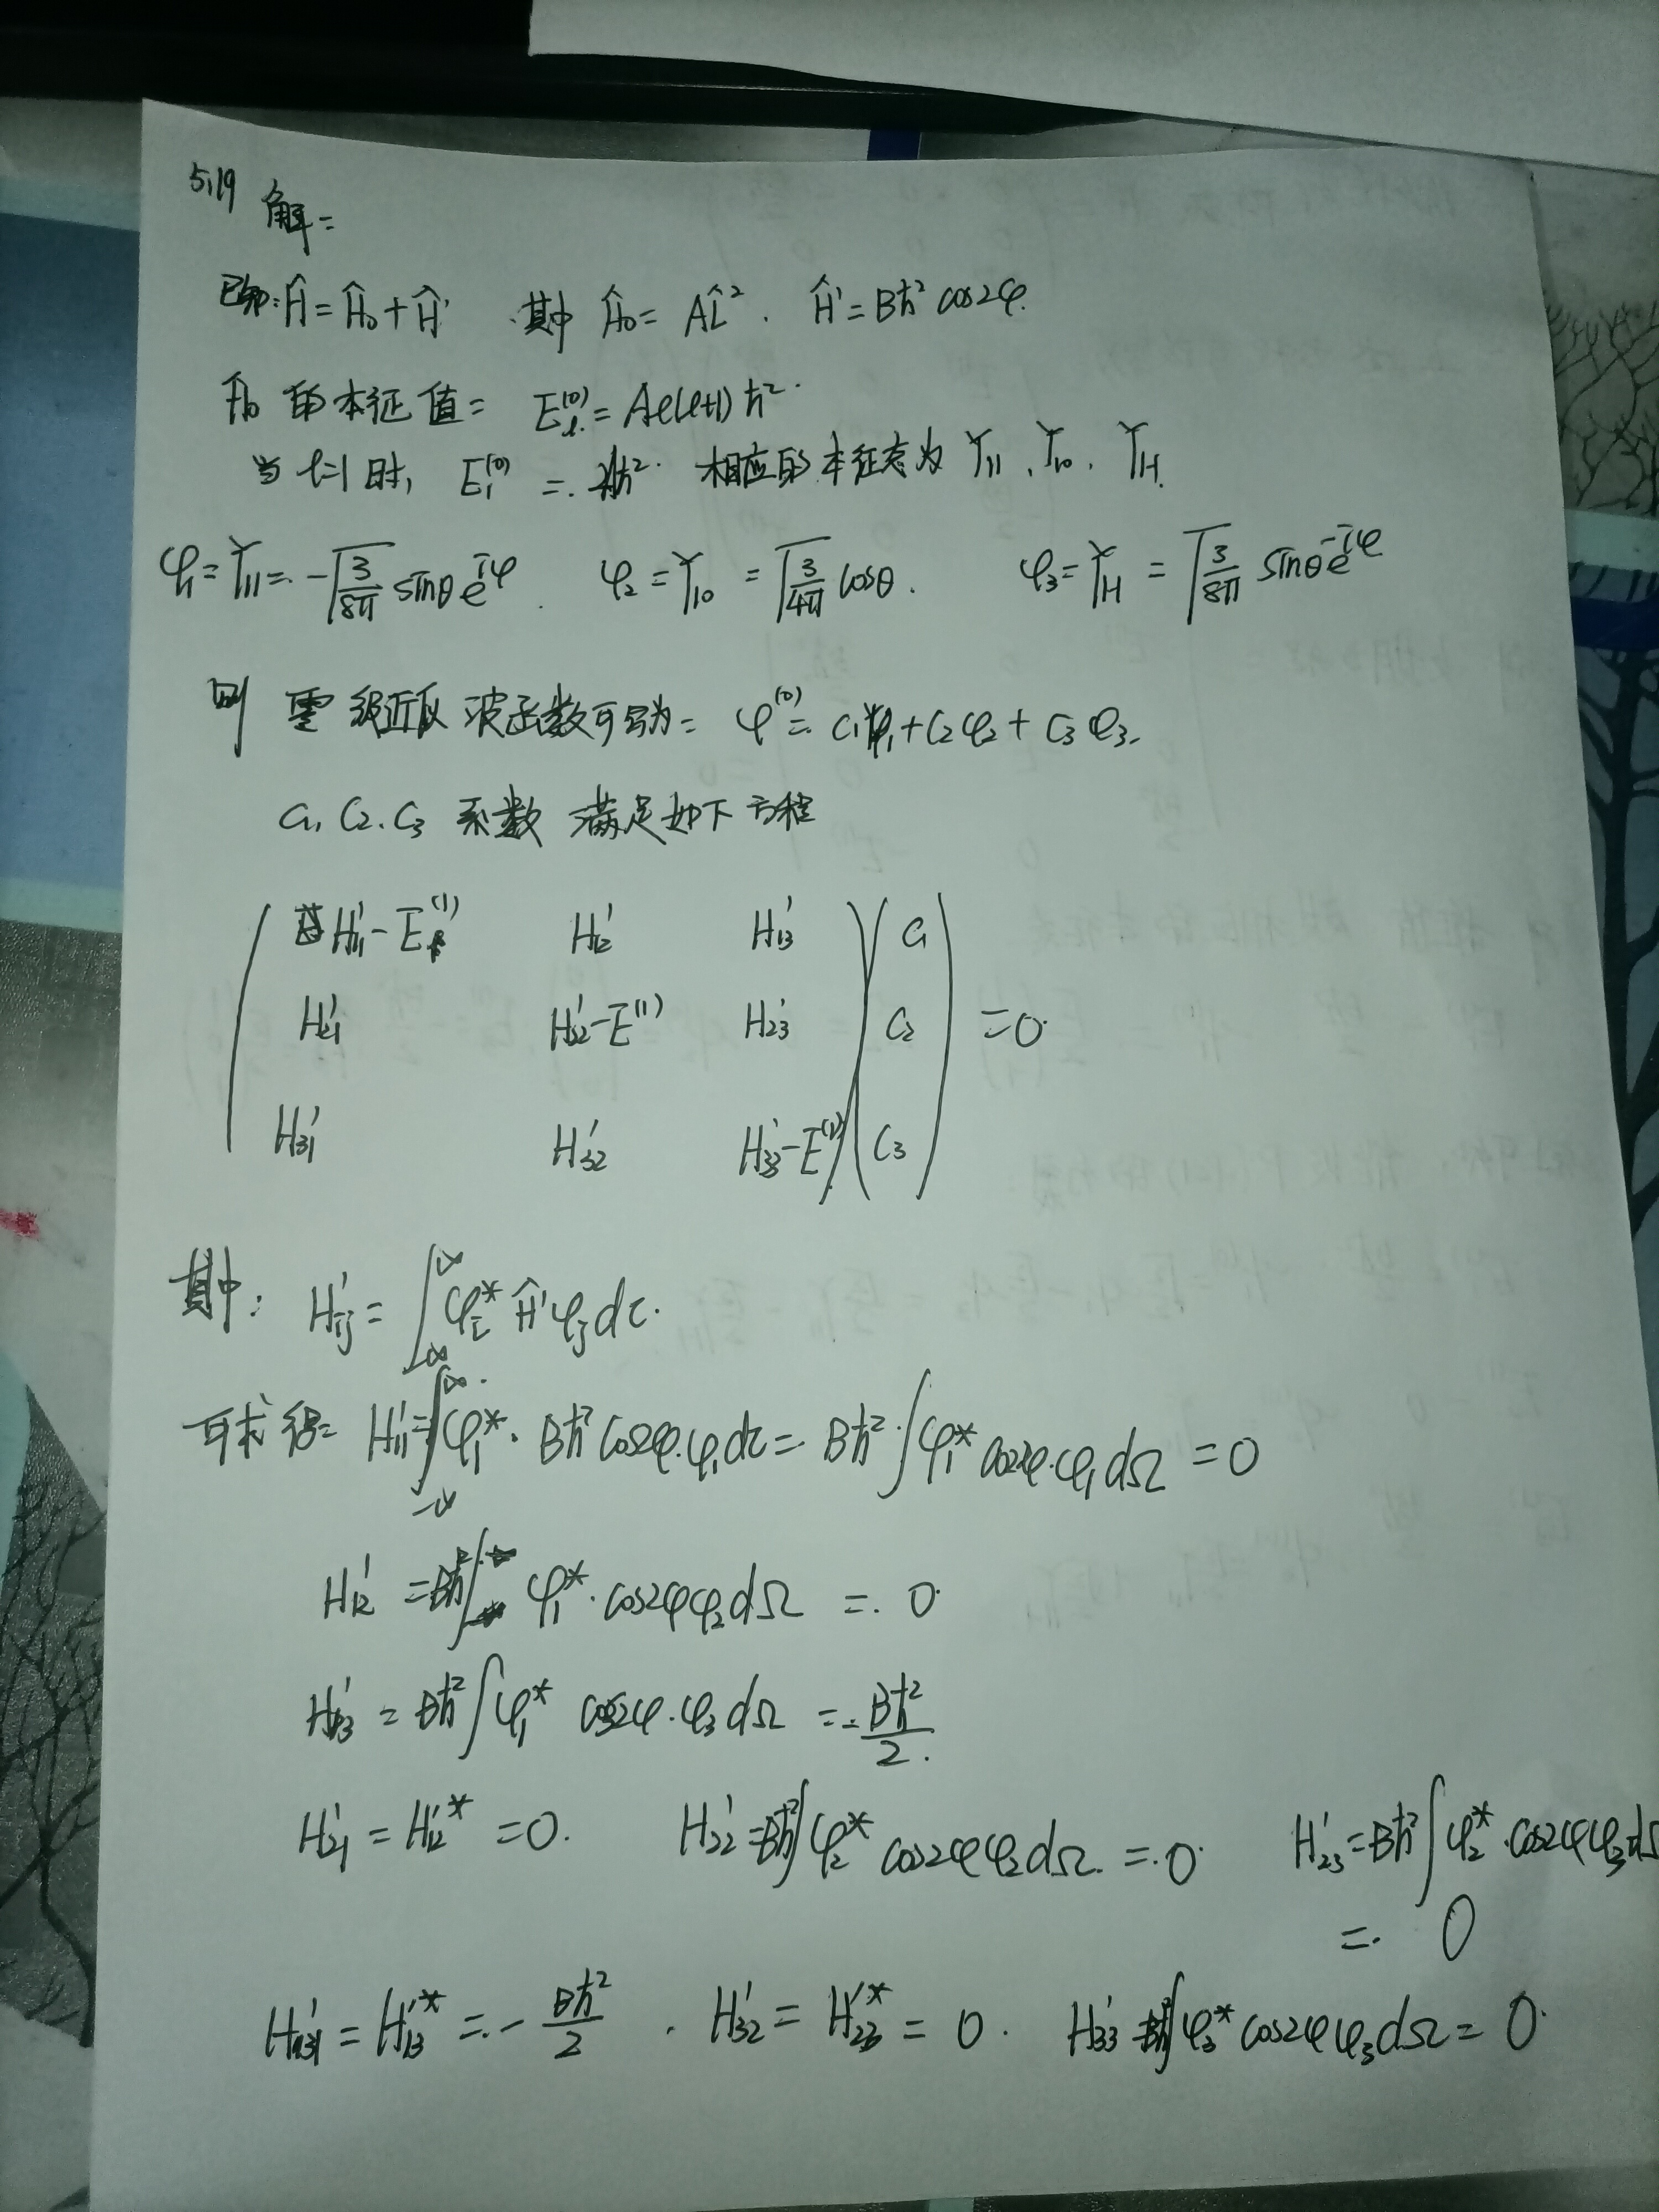 5.19 解:
已知: Ĥ = Ĥ₀ + Ĥ' 其中 Ĥ₀ = AL̂². Ĥ' = Bħ² cos2φ.
Ĥ₀ 的本征值: E_l^(0) = Al(l+1)ħ².
当 l=1 时, E₁^(0) = 2Aħ². 相应的本征态为 Y₁₁、Y₁₀、Y₁₋₁.
φ₁ = Y₁₁ = -√(3/8π) sinθ e^{iφ}. φ₂ = Y₁₀ = √(3/4π) cosθ. φ₃ = Y₁₋₁ = √(3/8π) sinθ e^{-iφ}
则 零级近似波函数可写为: φ^(0) = C₁φ₁ + C₂φ₂ + C₃φ₃.
C₁, C₂, C₃ 系数 满足如下方程
( H'₁₁-E^(1) H'₁₂ H'₁₃ ) ( C₁ )
( H'₂₁ H'₂₂-E^(1) H'₂₃ ) ( C₂ ) = 0.
( H'₃₁ H'₃₂ H'₃₃-E^(1) ) ( C₃ )
其中: H'ᵢⱼ = ∫_{-∞}^{∞} φᵢ* Ĥ' φⱼ dτ.
可求得: H'₁₁ = ∫_{-∞}^{∞} φ₁* · Bħ² cos2φ · φ₁ dτ = Bħ² ∫ φ₁* cos2φ · φ₁ dΩ = 0
H'₁₂ = Bħ² ∫ φ₁* · cos2φ φ₂ dΩ = 0.
H'₁₃ = Bħ² ∫ φ₁* cos2φ · φ₃ dΩ = -Bħ²/2.
H'₂₁ = H'₁₂* = 0. H'₂₂ = Bħ² ∫ φ₂* cos2φ φ₂ dΩ = 0. H'₂₃ = Bħ² ∫ φ₂* · cos2φ φ₃ dΩ
= 0
H'₃₁ = H'₁₃* = -Bħ²/2. H'₃₂ = H'₂₃* = 0. H'₃₃ = Bħ² ∫ φ₃* cos2φ φ₃ dΩ = 0.